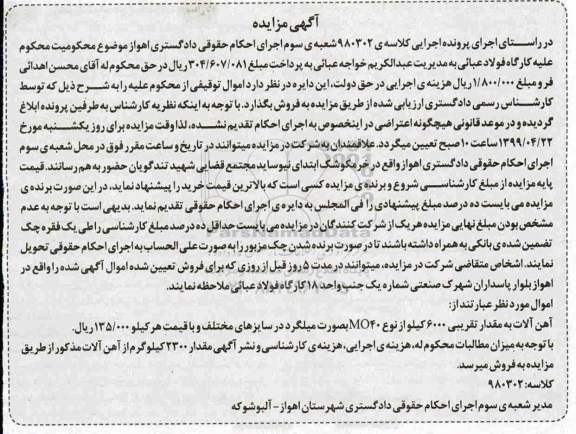 آگهی مزایده
در راستای اجرای پرونده اجرایی کلاسه ی ۹۸۰۳۰۲ شعبه ی سوم اجرای احکام حقوقی دادگستری اهواز موضوع محکومیت محکوم
علیه کارگاه فولاد عبائی به مدیریت عبدالکریم خواجه عبائی به پرداخت مبلغ ۳۰۴/۶۰۷/۰۸۱ ریال در حق محکوم له آقای محسن اهدائی
فر و مبلغ ۱/۸۰۰/۰۰۰ ریال هزینه ی اجرایی در حق دولت، این دایره در نظر دارد اموال توقیفی از محکوم علیه را به شرح ذیل که توسط
کارشناس رسمی دادگستری ارزیابی شده از طریق مزایده به فروش بگذارد. با توجه به اینکه نظریه کارشناس به طرفین پرونده ابلاغ
گردیده و در موعد قانونی هیچگونه اعتراضی در اینخصوص به اجرای احکام تقدیم نشده، لذا وقت مزایده برای روز یکشنبه مورخ
۱۳۹۹/۰۴/۲۲ ساعت ۱۰ صبح تعیین میگردد. علاقمندان به شرکت در مزایده میتوانند در تاریخ و ساعت مقرر فوق در محل شعبه ی سوم
اجرای احکام حقوقی دادگستری اهواز واقع در خرمکوشک ابتدای نیوساید مجتمع قضایی شهید تندگویان حضور به هم رسانند. قیمت
پایه مزایده از مبلغ کارشناسی شروع و برنده ی مزایده کسی است که بالاترین قیمت خرید را پیشنهاد نماید، در این صورت برنده ی
مزایده می بایست ده درصد مبلغ پیشنهادی را فی المجلس به دایره ی اجرای احکام حقوقی تقدیم نماید. بدیهی است با توجه به عدم
مشخص بودن مبلغ نهایی مزایده هر یک از شرکت کنندگان در مزایده می بایست حداقل ده درصد مبلغ کارشناسی را طی یک فقره چک
تضمین شده ی بانکی به همراه داشته باشند تا در صورت برنده شدن چک مزبور را به صورت علی الحساب به اجرای احکام حقوقی تحویل
نمایند. اشخاص متقاضی شرکت در مزایده، میتوانند در مدت ۵ روز قبل از روزی که برای فروش تعیین شده اموال آگهی شده را واقع در
اهواز بلوار پاسداران شهرک صنعتی شماره یک جنب واحد ۱۸ کارگاه فولاد عبائی ملاحظه نمایند.
اموال مورد نظر عبارتند از:
آهن آلات به مقدار تقریبی ۶۰۰۰ کیلو از نوع MO۴۰ بصورت میلگرد در سایزهای مختلف و با قیمت هر کیلو ۱۳۵/۰۰۰ ریال.
با توجه به میزان مطالبات محکوم له، هزینه ی اجرایی، هزینه ی کارشناسی و نشر آگهی مقدار ۲۳۰۰ کیلوگرم از آهن آلات مذکور از طریق
مزایده به فروش میرسد.
کلاسه: ۹۸۰۳۰۲
مدیر شعبه ی سوم اجرای احکام حقوقی دادگستری شهرستان اهواز - آلبوشوکه